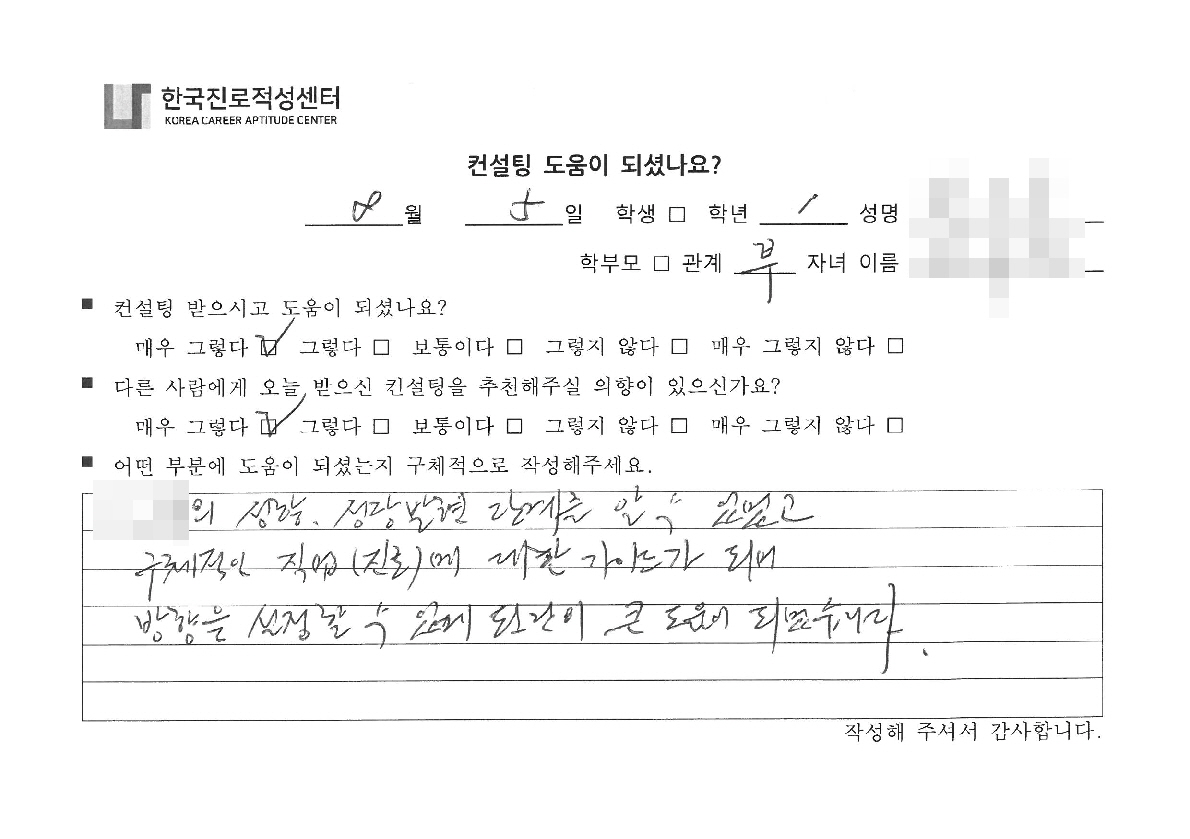 한국진로적성센터
KOREA CAREER APTITUDE CENTER
컨설팅 도움이 되셨나요?
8 월 5 일 학생 □ 학년 1 성명
학부모 □ 관계 부 자녀 이름
■ 컨설팅 받으시고 도움이 되셨나요?
매우 그렇다 ☑ 그렇다 □ 보통이다 □ 그렇지 않다 □ 매우 그렇지 않다 □
■ 다른 사람에게 오늘 받으신 컨설팅을 추천해주실 의향이 있으신가요?
매우 그렇다 ☑ 그렇다 □ 보통이다 □ 그렇지 않다 □ 매우 그렇지 않다 □
■ 어떤 부분에 도움이 되셨는지 구체적으로 작성해주세요.
의 성향. 발현 단계를 알 수 있었고
구체적인 직업(진로)에 대한 가이드가 되며
방향을 설정할 수 있게 되 큰 도움이 되었습니다.
작성해 주셔서 감사합니다.